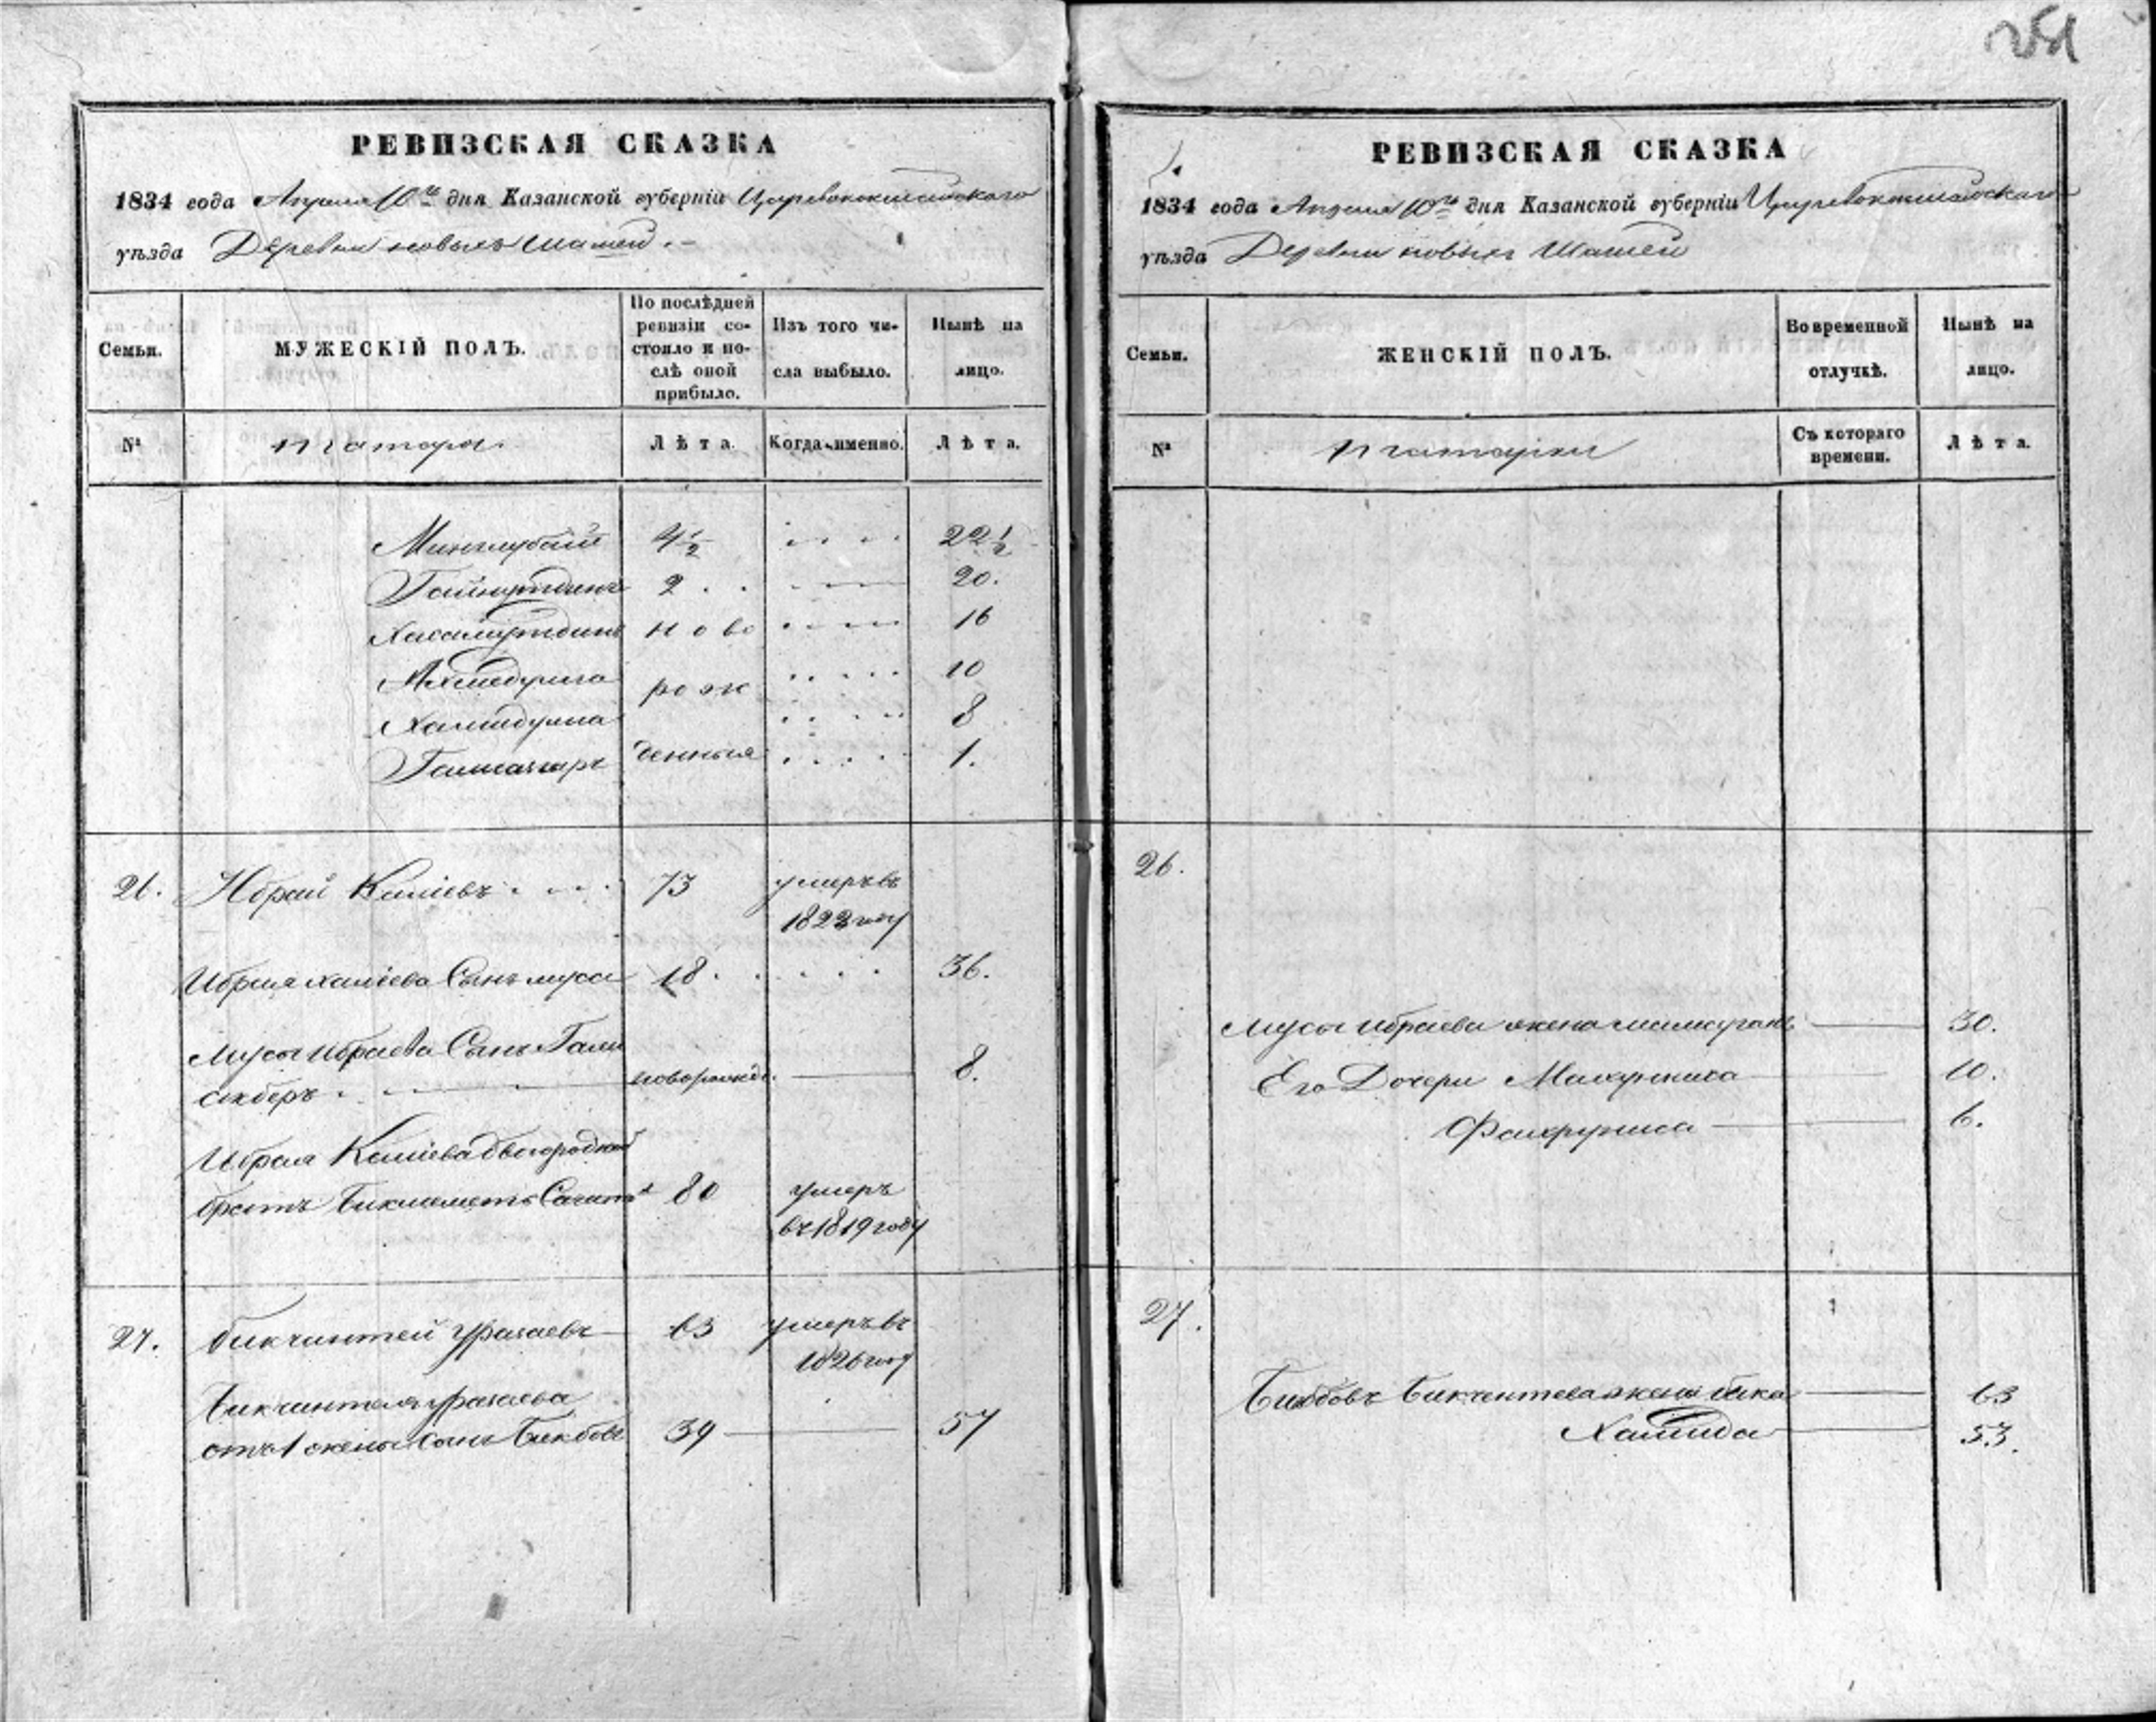 251
РЕВИЗСКАЯ СКАЗКА
1834 года Апреля 10го дня Казанской губерніи Царевококшайскаго
уѣзда Деревни новыхъ Шашей
Семьи.
МУЖЕСКІЙ ПОЛЪ.
По послѣдней ревизіи со-
стояло и по-
слѣ оной
прибыло.
Изъ того чи-
сла выбыло.
Нынѣ на
лицо.
№
татара
Лѣта.
Когда именно.
Лѣта.
4½ 22½
Гайнутдинъ 2 20.
ново 16
10
рож
Хамидулла 8
денныя 1.
26. Ибрай Калиевъ 73 умеръ въ
1822 году
Ибрая халиева Сынъ муса 18 36.
Мусы ибраева Сынъ Гали
акберъ новорожд. 8.
Ибрая Калиева двоюродной
братъ Бикмаметъ 80 умеръ
въ 1819 году
27. бикчинтей Уразаевъ 63 умеръ въ
1826 году
Бикчинтея уразаева
отъ 1 жены Сынъ Бикбовъ 39 57
РЕВИЗСКАЯ СКАЗКА
1834 года Апреля 10го дня Казанской губерніи Царевококшайскаго
уѣзда Деревни новыхъ Шашей
Семьи.
ЖЕНСКІЙ ПОЛЪ.
Во временной
отлучкѣ.
Нынѣ на
лицо.
№
татарки
Съ котораго
времени.
Лѣта.
26.
Мусы ибраева жена 30.
Его Дочери 10.
Фахруниса 6.
27.
Бикбовъ Бикчинтеева жена 63
Хамида 53.